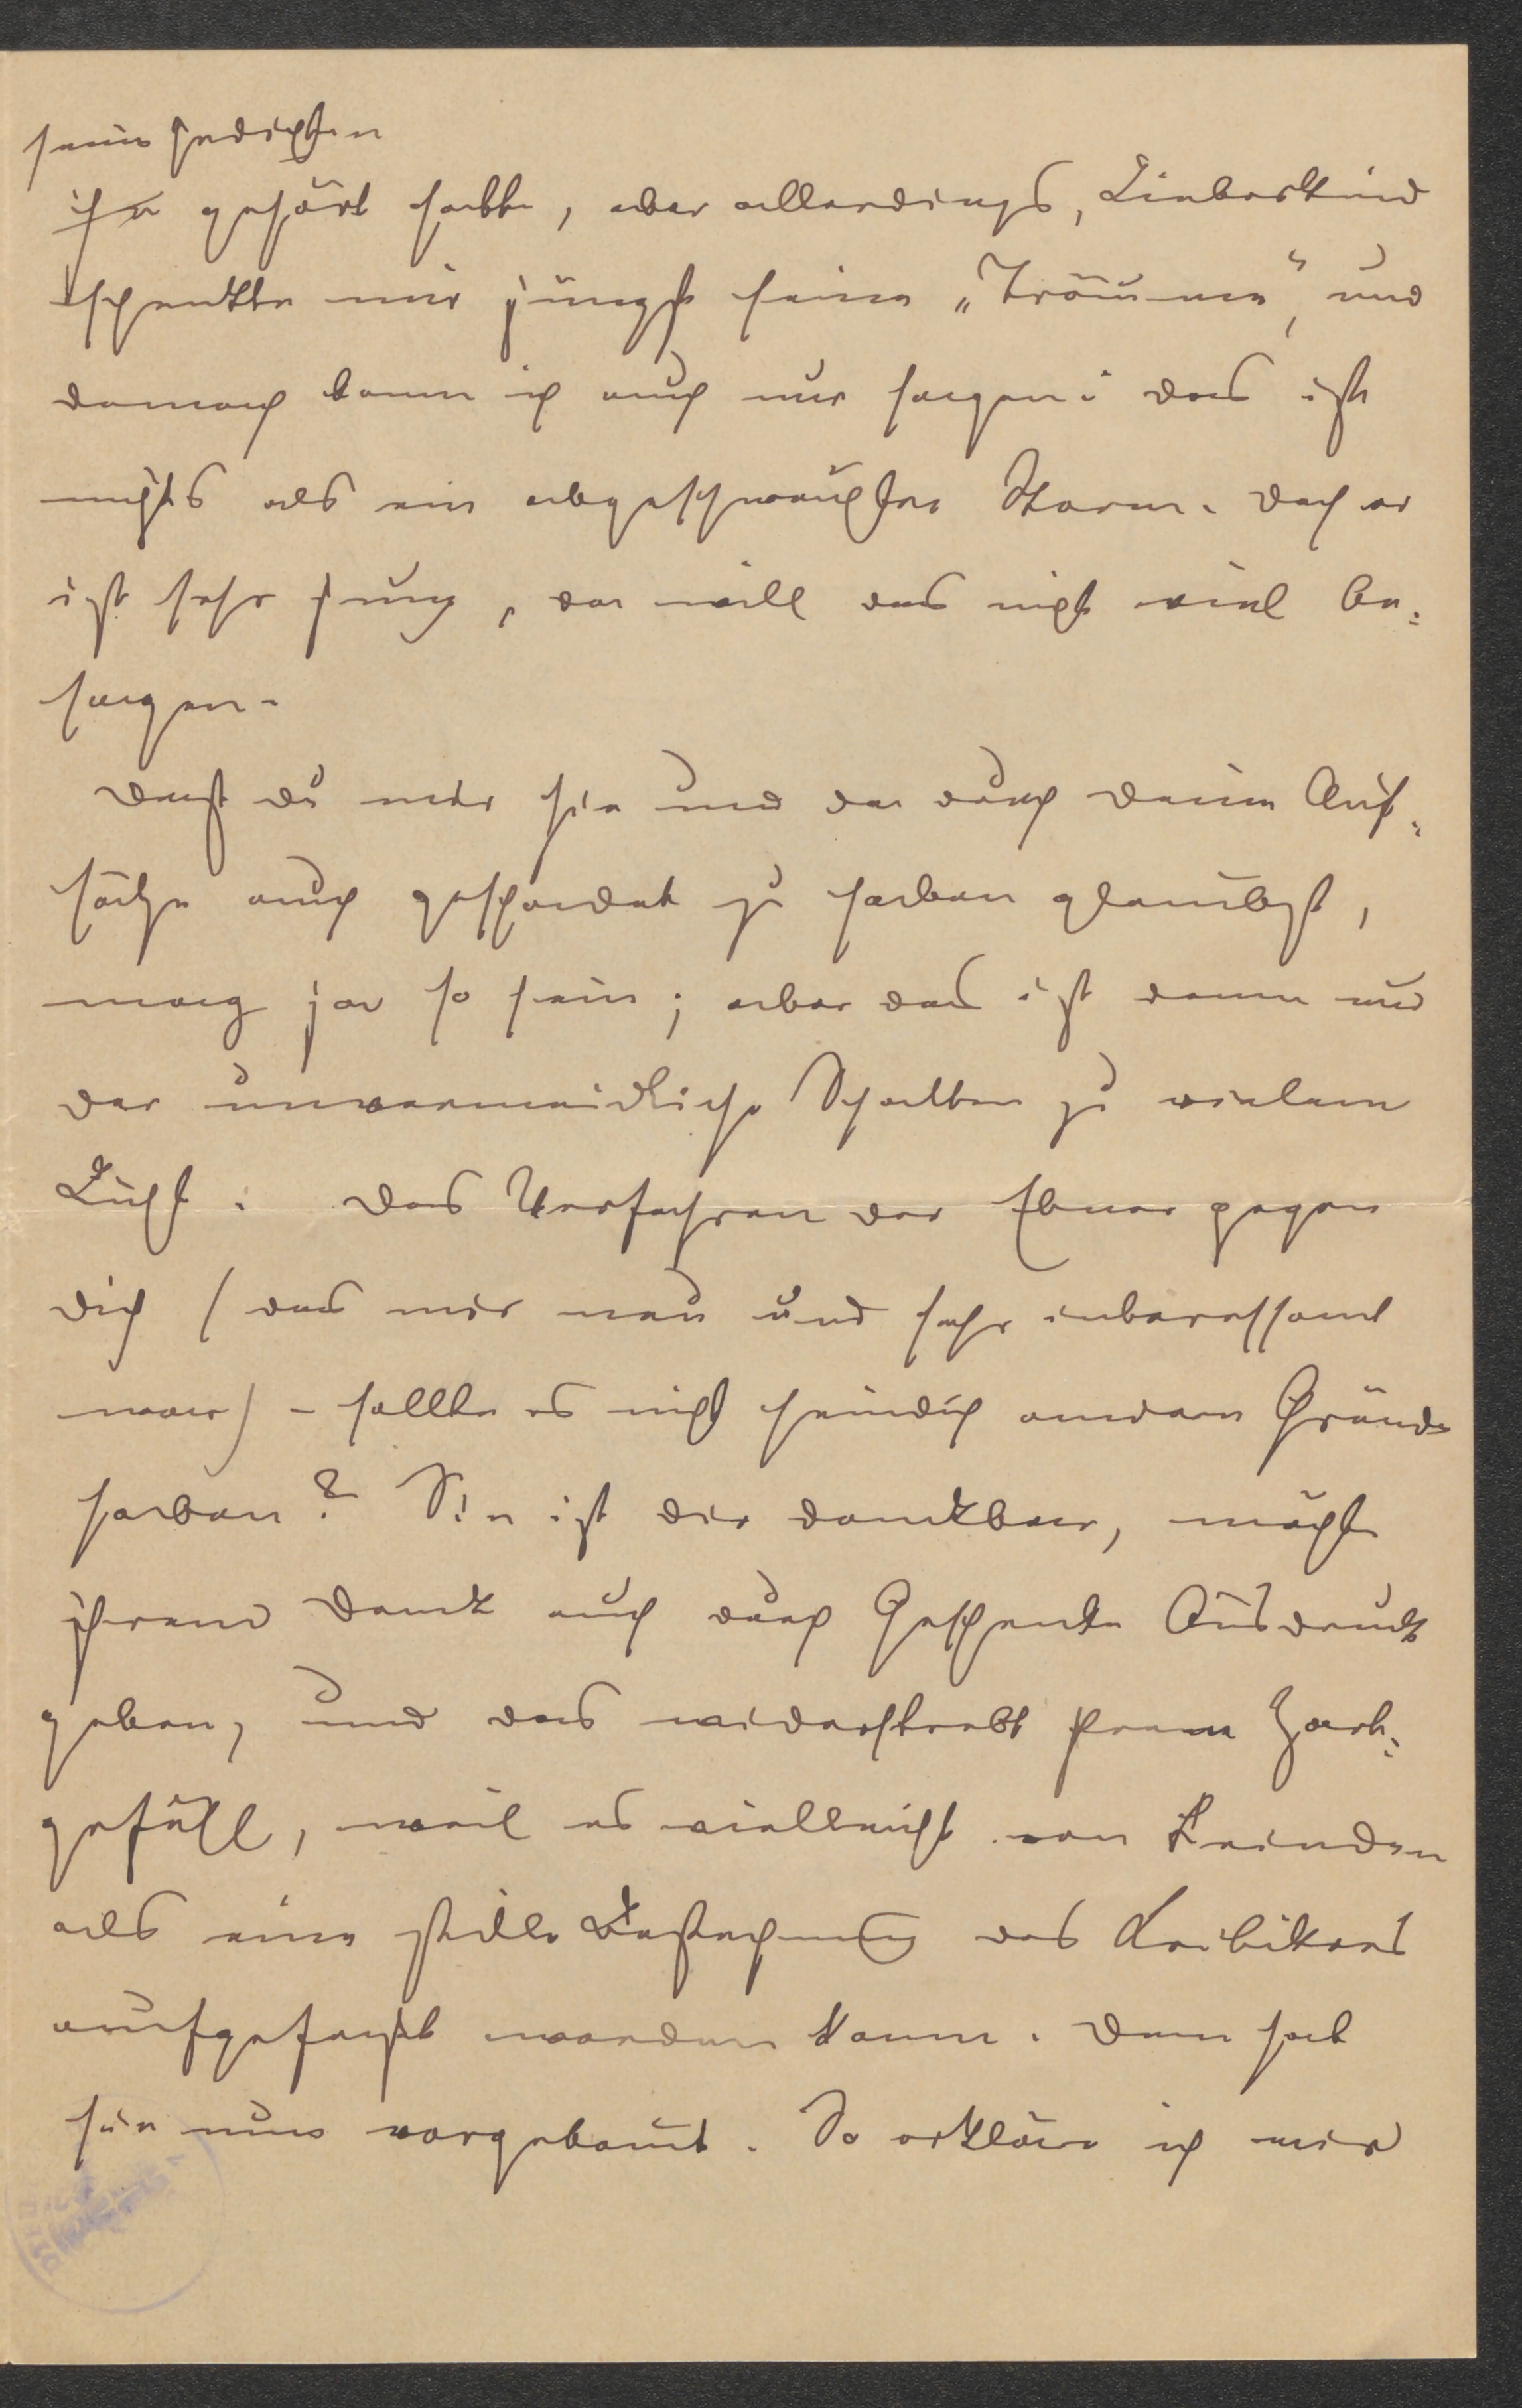 seine Gedichte
gehört hatte, aber allerdings, Liebeskind
schenkte mir jüngst seine „Träume“, und
danach kann ich auch nur sagen: das ist
nichts als ein abgeschwächter Storm. Doch er
ist sehr jung, da will das nicht viel be-
sagen.
Daß du mir hie und da durch deine Auf-
sätze auch geschadet zu haben glaubst,
mag ja so sein; aber das ist dann nur
der unvermeidliche Schatten zu vielem
Licht. Das Verfahren der Ebner gegen
dich (das mir neu und sehr interessant
war) – sollte es nicht andere Gründe
haben? Sie ist dir dankbar, möchte
ihrem Dank auch durch Geschenke Ausdruck
geben, und das widerstrebt ihrem Zart-
gefühl, weil es vielleicht von Feinden
als eine stille Bestechung des Kritikers
aufgefaßt werden kann. Dem hat
sie nun vorgebaut. So erkläre ich mir